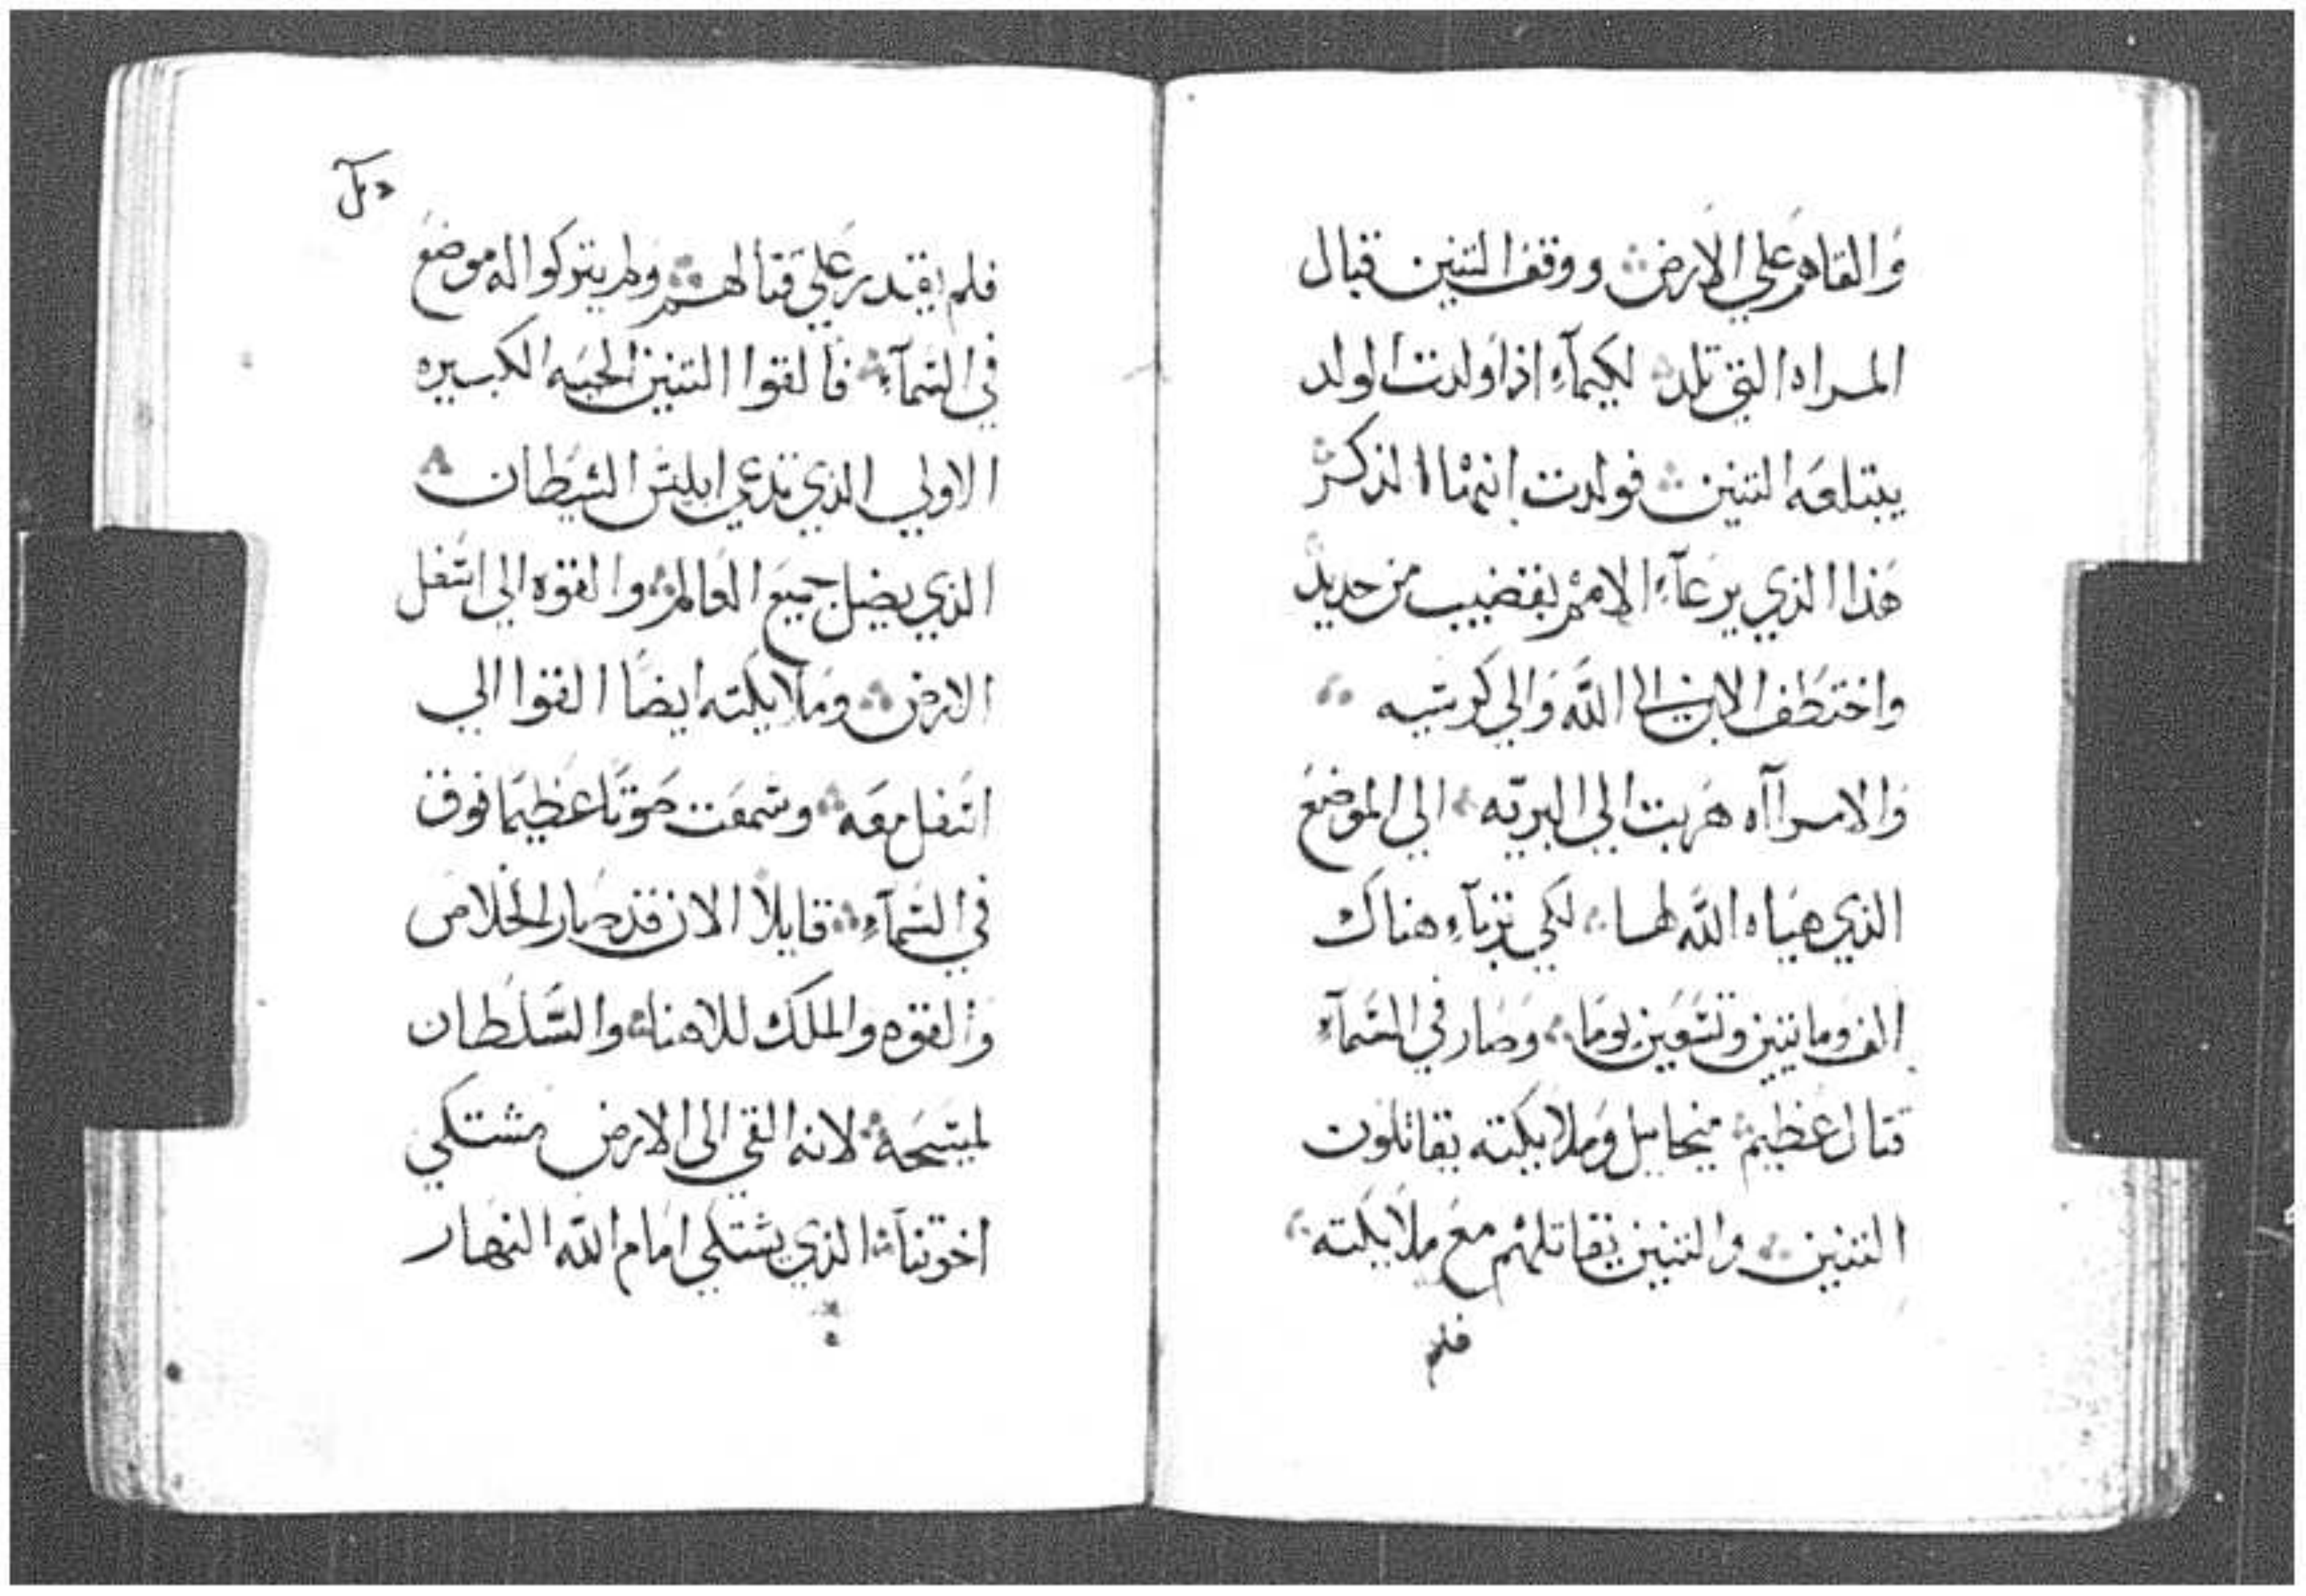 والقاهم علي الارض ووقف التنين قبال
المراه التي تلد لكيماء اذا ولدت الولد
يبتلعه التنين فولدت ابنها الذكر
هذا الذي يرعاء الامم بقضيب من حديد
واختطف الابن الي الله والي كرسيه
والامراآه هربت الي البريه الي الموضع
الذي هياه الله لها لكي تربآء هناك
الف وماتين وتسعين يوما وصار في السمآء
قتال عظيم ميخاييل وملايكته يقاتلون
التنين والتنين يقاتلهم مع ملايكته
فلم
فلم يقدر علي قتالهم ولم يتركوا له موضع
في السمآء فالقوا التنين الحيه الكبيره
الاولي الذي تدعي ابليس الشيطان
الذي يضل جميع العالم والقوه الي اسفل
الارض وملايكته ايضا القوا الي
اسفل معه وسمعت صوتا عظيما فوق
في السمآء قايلا الان قد صار الخلاص
والقوه والملك للاهنا والسلطان
لمسيحه لانه القي الي الارض مشتكي
اخوتنا الذي يشتكي امام الله النهار